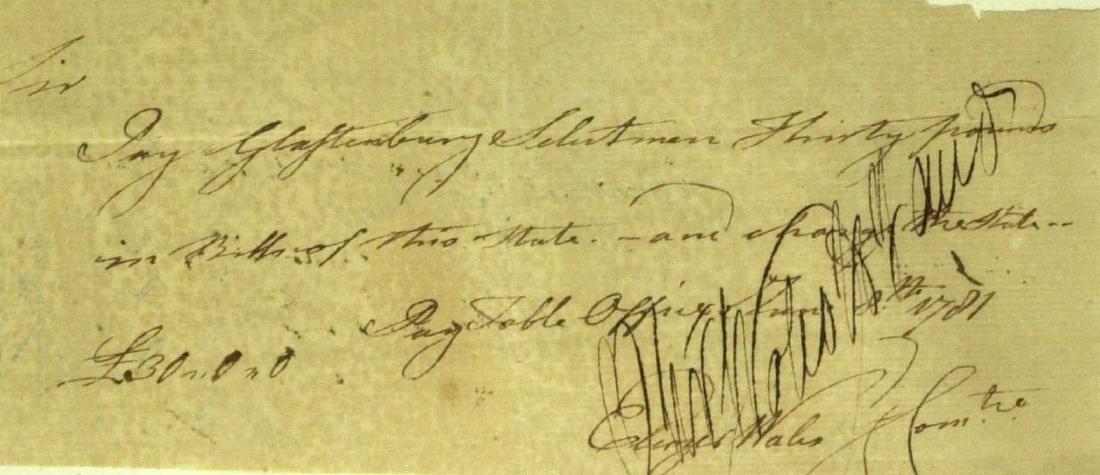 Sir
Pay Glastenbury Selectmen Thirty pounds
in Bills of this State. – and charge the State --
Pay Table Office June 8th 1781
£30 " 0 " 0
Eleazer Wales Comtee